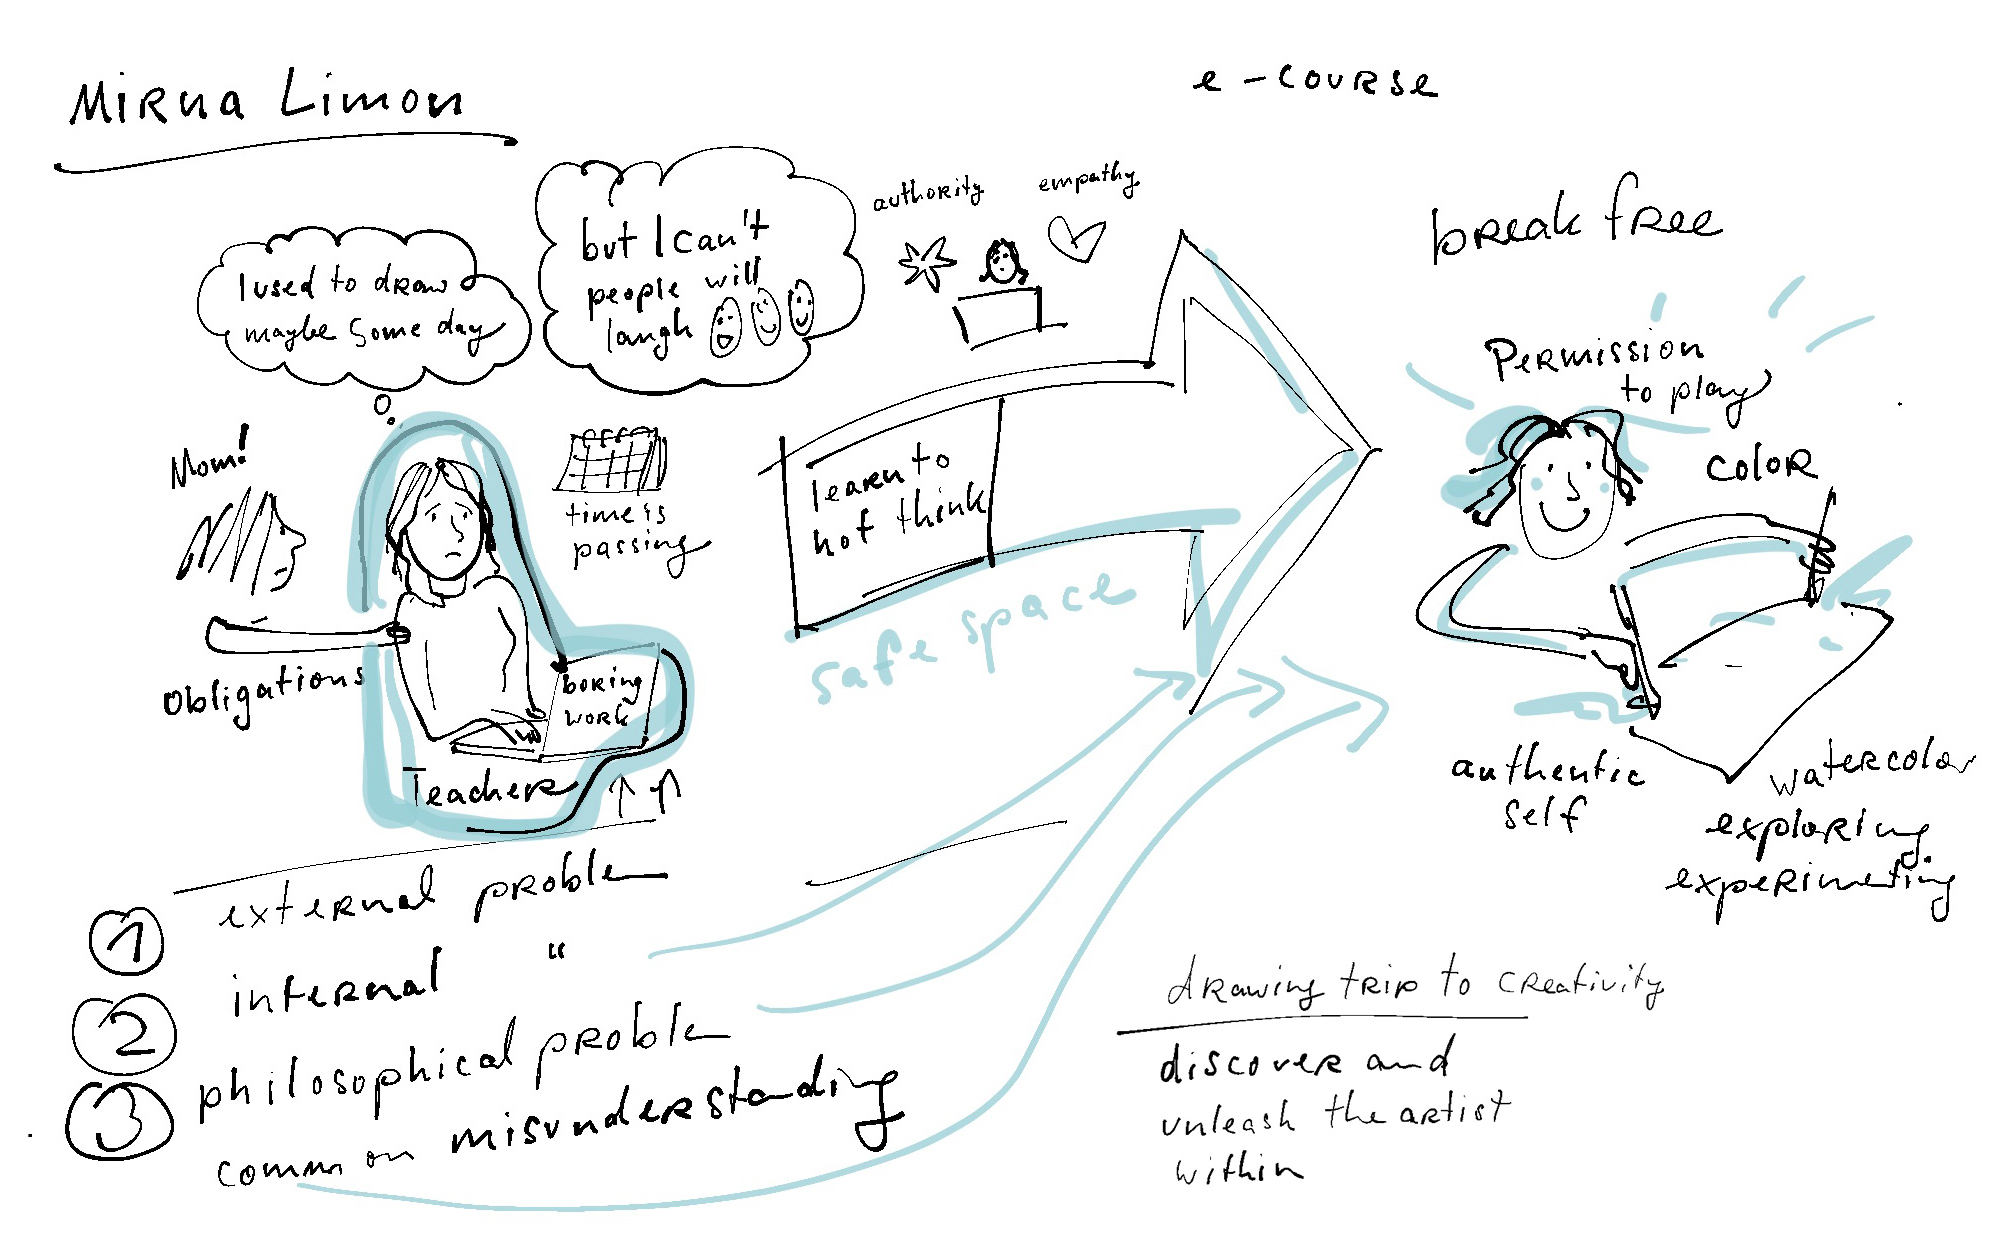 Mirna Limon
e-course
I used to draw
maybe some day
but I can't
people will
laugh
authority
empathy
break free
Permission
to play
color
Mom!
time is
passing
learn to
not think
safe space
Obligations
boring
work
Teacher
authentic
self
watercolor
exploring
experimeting
1 external problem
2 internal "
3 philosophical problem
common misunderstanding
drawing trip to creativity
discover and
unleash the artist
within